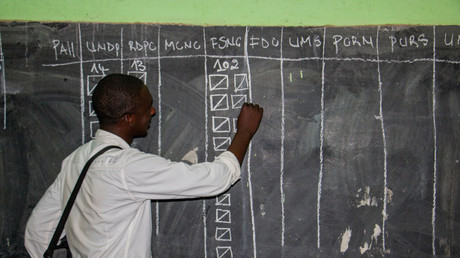 PAH UNDP RDPC MCNC FSNC FDC UMS PCRN PURS UN
14 13 102